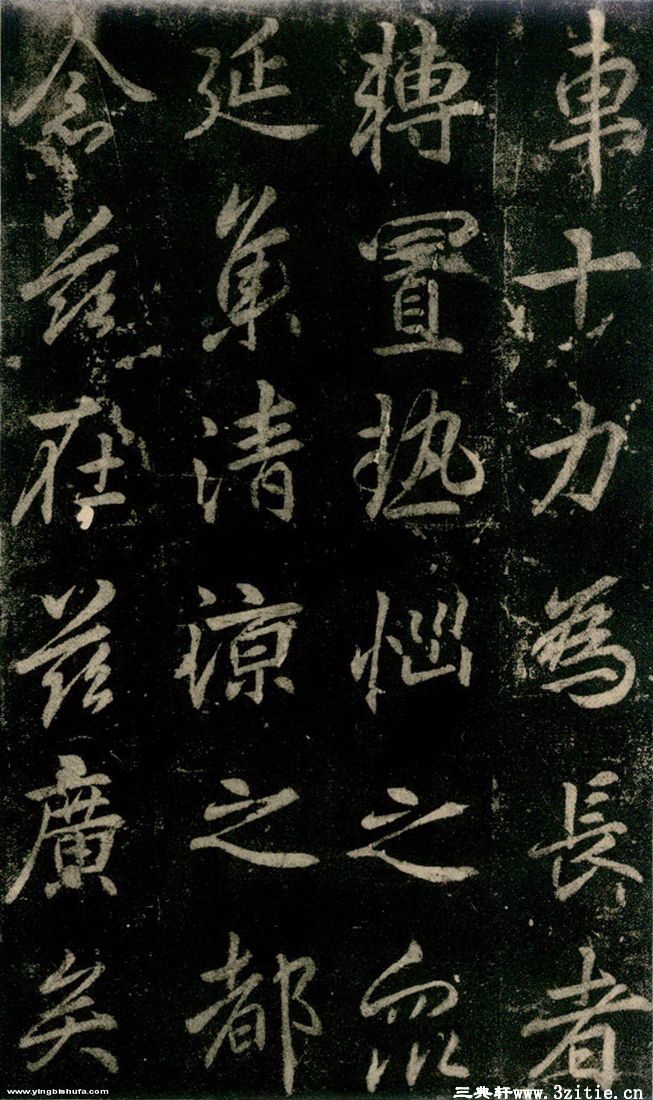 車十力為長者
轉置热惱之衆
延集清涼之都
念茲在茲廣矣
www.yingbishufa.com
三典轩www.3zitie.cn